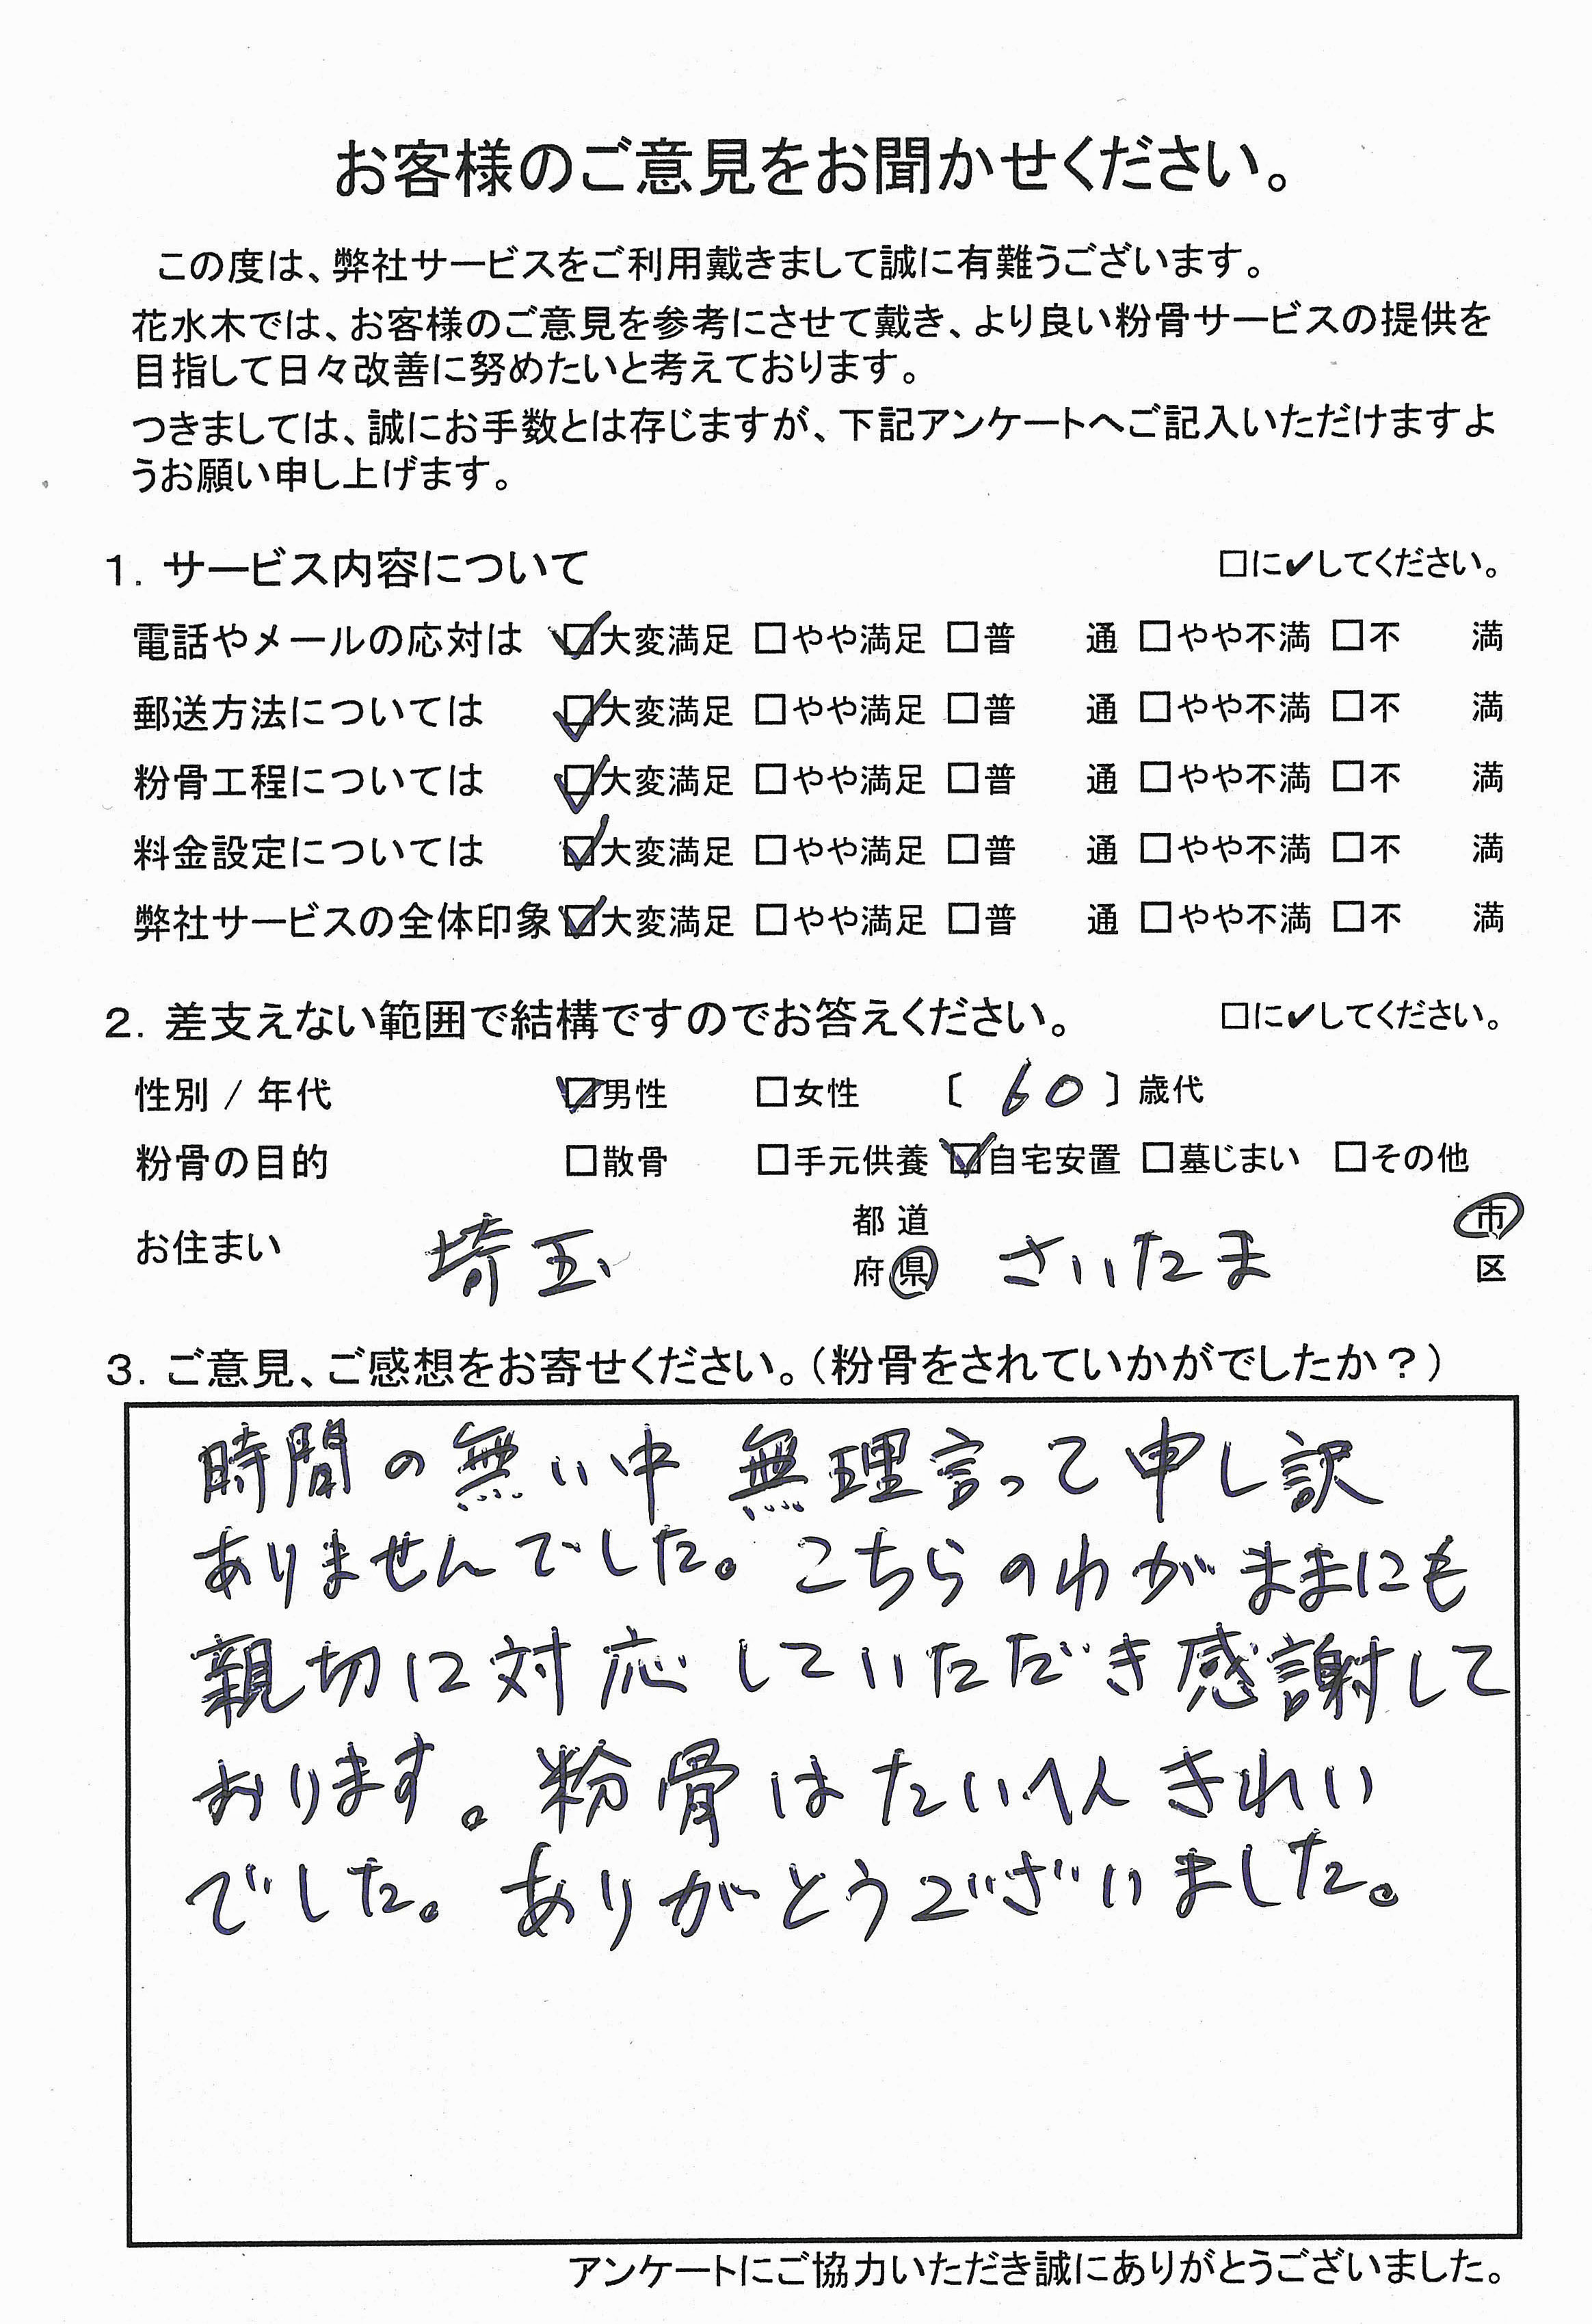 お客様のご意見をお聞かせください。
この度は、弊社サービスをご利用戴きまして誠に有難うございます。
花水木では、お客様のご意見を参考にさせて戴き、より良い粉骨サービスの提供を
目指して日々改善に努めたいと考えております。
つきましては、誠にお手数とは存じますが、下記アンケートへご記入いただけますよ
うお願い申し上げます。
1. サービス内容について □に✔してください。
電話やメールの応対は ☑大変満足 □やや満足 □普 通 □やや不満 □不 満
郵送方法については ☑大変満足 □やや満足 □普 通 □やや不満 □不 満
粉骨工程については ☑大変満足 □やや満足 □普 通 □やや不満 □不 満
料金設定については ☑大変満足 □やや満足 □普 通 □やや不満 □不 満
弊社サービスの全体印象 ☑大変満足 □やや満足 □普 通 □やや不満 □不 満
2. 差支えない範囲で結構ですのでお答えください。 □に✔してください。
性別 / 年代 ☑男性 □女性 〔 60 〕歳代
粉骨の目的 □散骨 □手元供養 ☑自宅安置 □墓じまい □その他
都道 市
お住まい 埼玉 さいたま
府県 区
3. ご意見、ご感想をお寄せください。（粉骨をされていかがでしたか？）
時間の無い中 無理言って申し訳
ありませんでした。こちらのわがままにも
親切に対応していただき感謝して
おります。粉骨はたいへんきれい
でした。ありがとうございました。
アンケートにご協力いただき誠にありがとうございました。